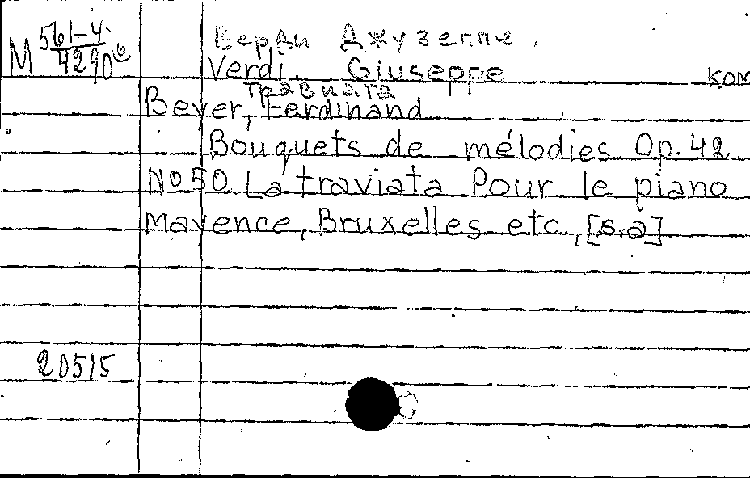 М 561-4
4290
Верди Джузеппе.
Verdi Giuseppe ком
Травиата
Beyer, Ferdinand
Bouquets de mélodies Op. 42
No 50. La traviata Pour le piano
Mayence, Bruxelles etc, [s.a]
20515